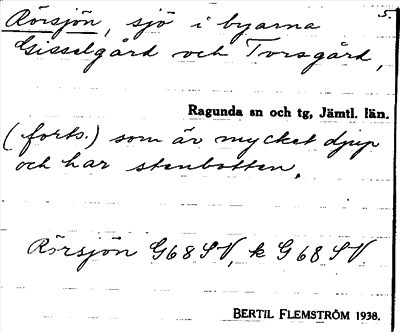 5.
Rörsjön, sjö i byarna
Gisselgård och Torsgård,
Ragunda sn och tg, Jämtl. län.
(forts.) som är mycket djup
och har stenbotten.
Rörsjön G68 SV, k G 68 SV
BERTIL FLEMSTRÖM 1938.